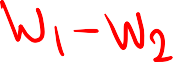 W₁ - W₂